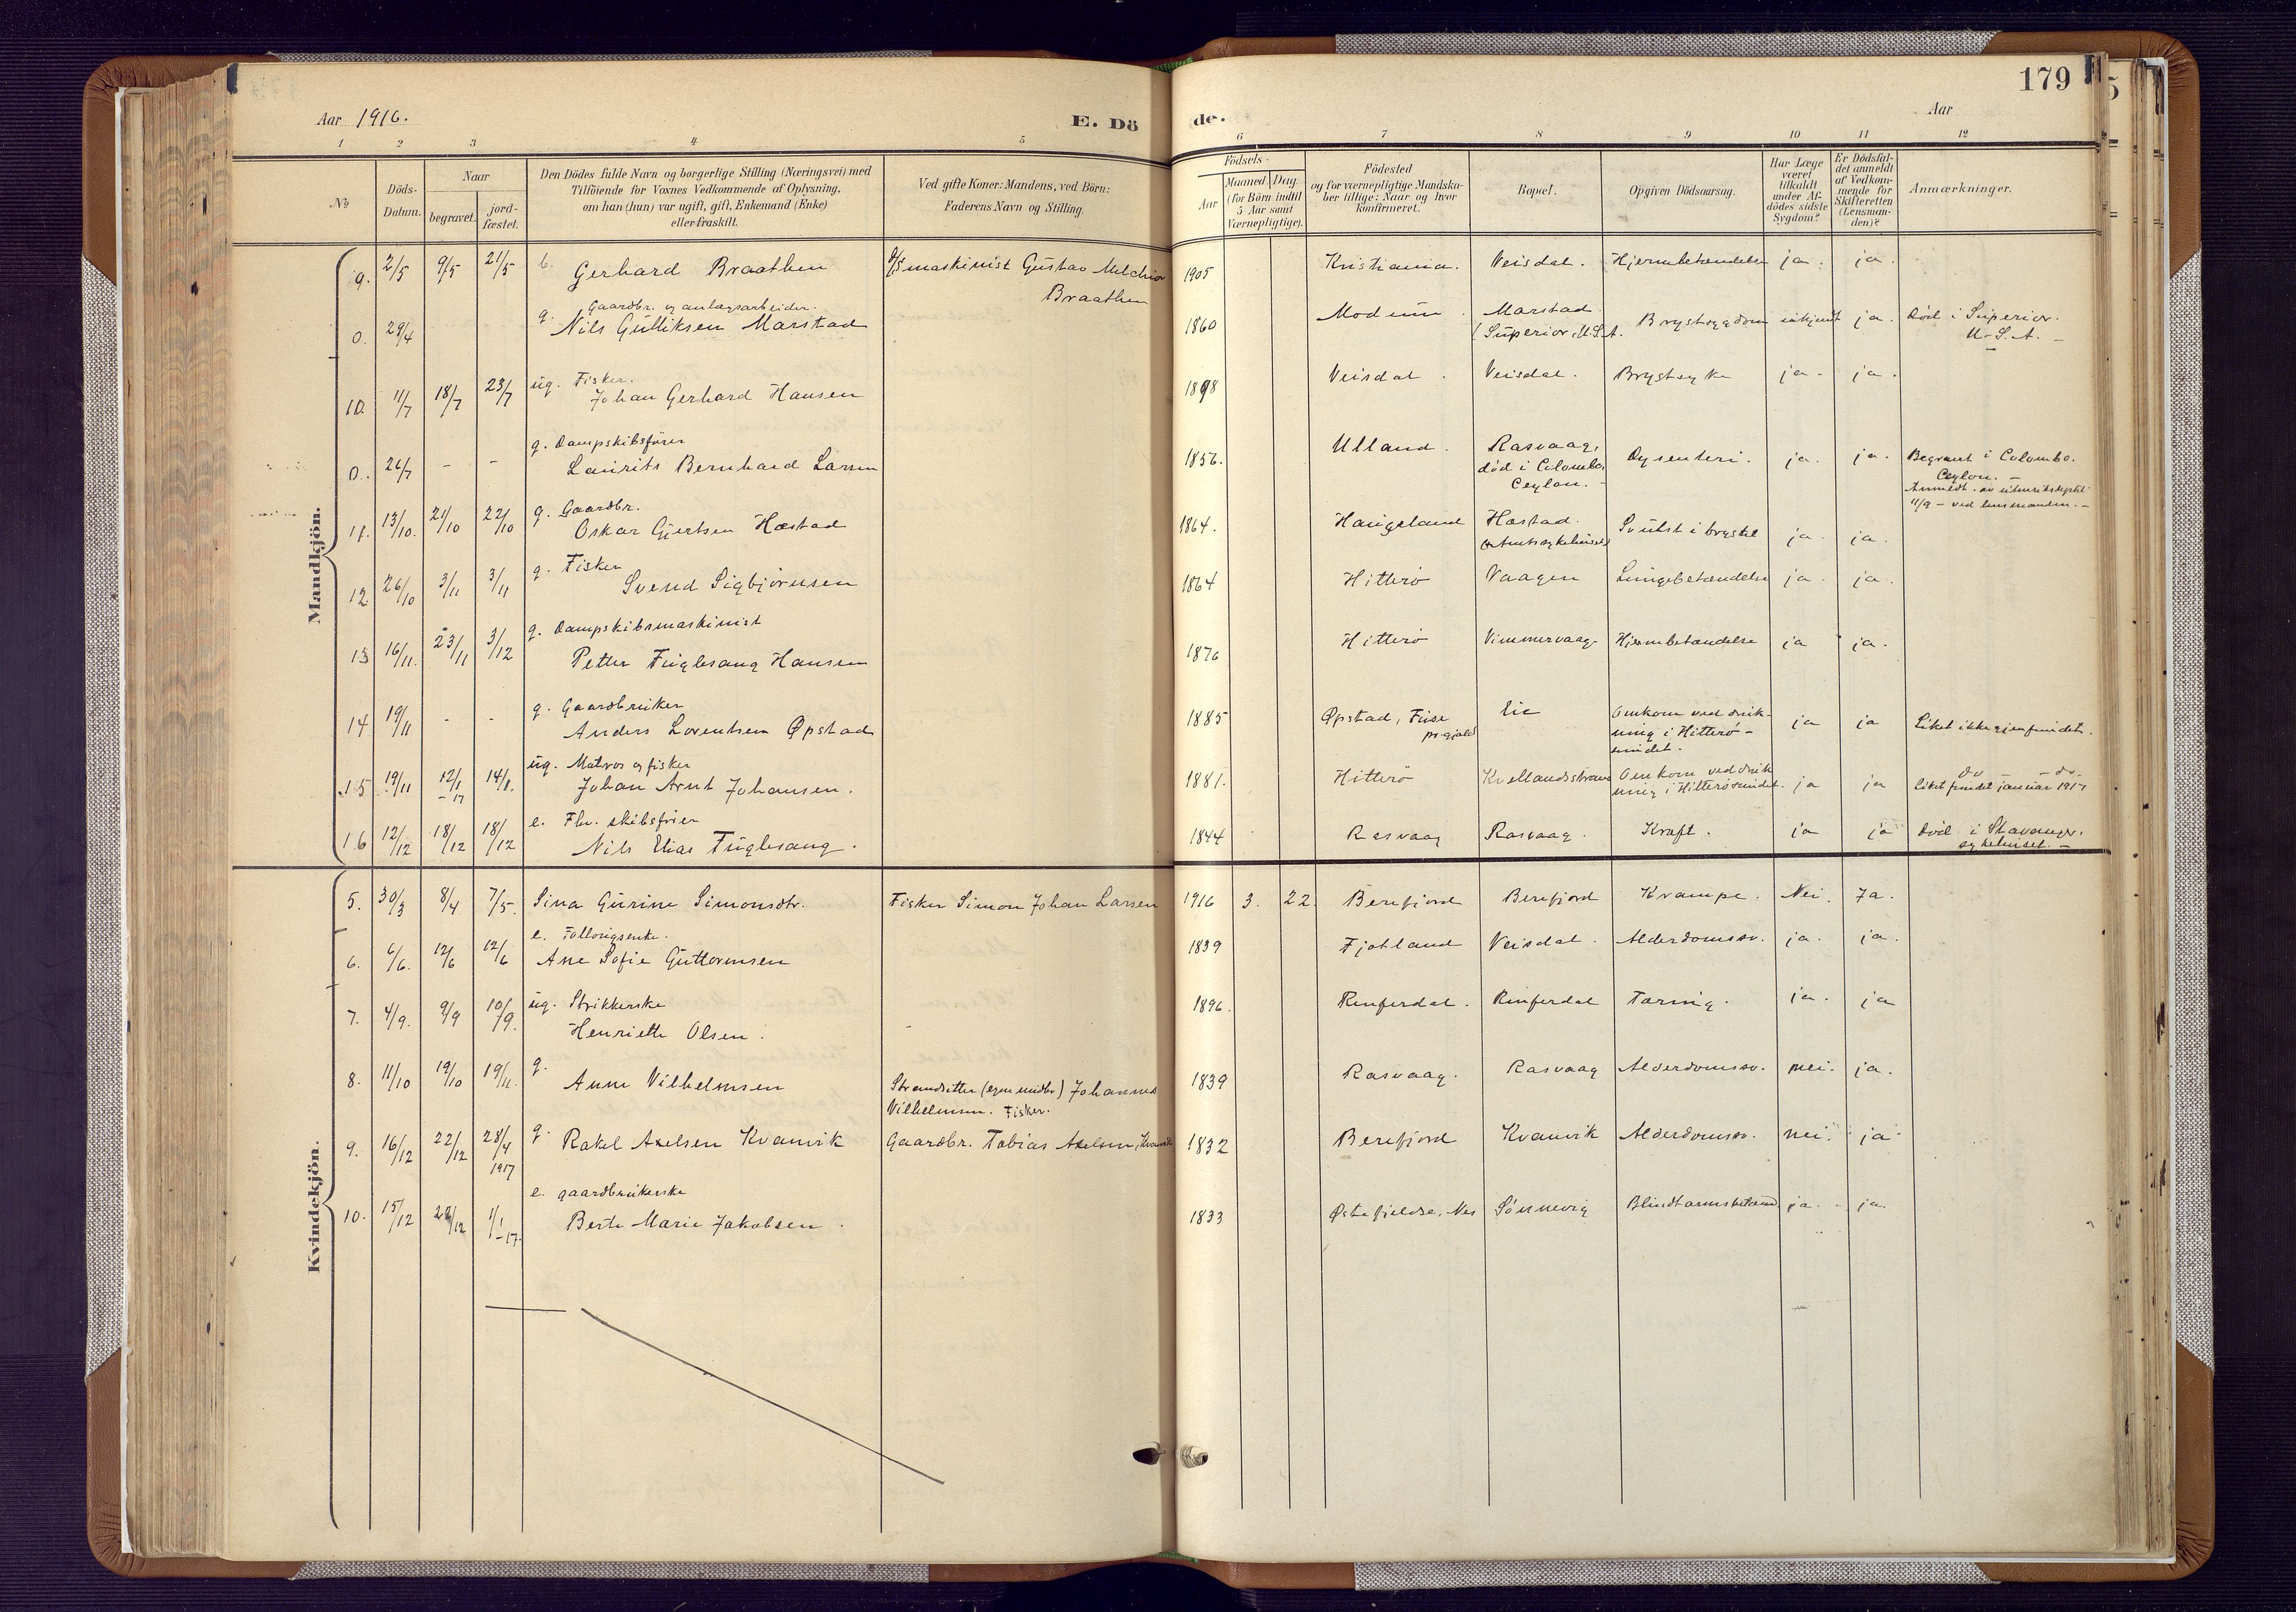 179
Aar 1916.
E. Dö
de.
Aar
1 2 3 4 5 6 7 8 9 10 11 12
No
Döds-
Datum.
Naar
begravet.
jord-
fæstet.
Den Dödes fulde Navn og borgerlige Stilling (Næringsvei) med
Tilföiende for Voxnes Vedkommende af Oplysning,
om han (hun) var ugift, gift, Enkemand (Enke)
eller fraskilt.
Ved gifte Koner: Mandens, ved Börn:
Faderens Navn og Stilling.
Födsels-
Aar
Maaned. Dag.
(for Börn indtil
5 Aar samt
Værnepligtige).
Födested
og for værnepligtige Mandska-
ber tillige: Naar og hvor
konfirmeret.
Bopæl.
Opgiven Dödsaarsag.
Har Læge
været
tilkaldt
under Af-
dödes sidste
Sygdom?
Er Dödsfal-
det anmeldt
af Vedkom-
mende for
Skifteretten
(Lensman-
den)?
Anmærkninger.
Mandkjön.
9. 2/5 9/5 21/5 b. Gerhard Braathen
maskinist Gustav Melchior
Braathen
1905 Kristiania. Veisdal. Hjernebetændelse ja. ja.
g. Gaardbr. og anlægsarbeider.
0. 29/4 Nils Gulliksen Marstad
1860 Modum. Marstad
(Superior, U.S.A. Brystsygdom ukjent ja. död i Superior.
U-S.A. -
ug. Fisker.
10. 11/7 18/7 23/7 Johan Gerhard Hansen
1898 Veisdal. Veisdal. Brystsyke ja. ja.
g. Dampskibsförer
0. 26/7 - - Laurits Bernhard Larsen
1856. Ulland. Rasvaag,
död i Colombo,
Ceylon. - Dysenteri. ja. ja. Begravet i Colombo.
Ceylon. -
11/9 - ved lensmanden. -
g. Gaardbr.
11. 13/10. 21/10 22/10 Oskar Gjertsen Hæstad
1864. Haugeland Hæstad.
Svulst i brystet ja. ja.
g. Fisker
12 26/10 3/11 3/11 Svend Sigbjörnsen
1864 Hitterö Vaagen Lungebetændelse ja. ja.
g. Dampskibsmaskinist
13 16/11. 23/11 3/12 Petter Fuglesang Hansen
1876 Hitterö Vimmervaag. Hjernebetændelse ja ja.
g. Gaardbruker
14 19/11 - - Anders Lorentsen Øpstad
1885 Øpstad, Fuse
prgjæld Eie Omkom ved druk-
ning i Hitterö-
sundet. ja ja Liket ikke gjenfundet.
ug. Matros og fisker
15 19/11 12/1 -17 14/1. Johan Arnt Johansen.
1881. Hitterö Kvellandstrand Omkom ved druk
ning i Hitterösundet. ja ja do - do -
Liket fundet januar 1917
e. Fhv. skibsförer
16 12/12 18/12 18/12 Nils Elias Fuglesang.
1844 Rasvaag Rasvaag. Kræft. ja ja död i Stavanger.
sykehuset. -
Kvindekjön.
5. 30/3 8/4 7/5. Sina Gurine Simonsdtr. Fisker Simon Johan Larsen
1916 3. 22. Berefjord Berefjord Krampe. Nei. Ja.
e.
6. 6/6. 12/6 12/6 Ane Sofie Guttormsen
1839 Fjotland Veisdal. Alderdomssv. ja. ja.
ug. Strikkerske
7. 4/9. 9/9 10/9. Henriette Olsen.
1896. Rinferdal. Rinferdal Tæring. ja. ja
g.
8. 11/10 19/10 19/11. Anne Vilhelmsen Strandsitter Johannes
Vilhelmsen. Fisker.
1839 Rasvaag. Rasvaag Alderdomssv. nei. ja.
g.
9. 16/12 22/12 28/4 1917 Rakel Axelsen Kvanvik Gaardbr. Tobias Axelsen, Kvanvik
1832 Berefjord Kvanvik Alderdomssv. nei. ja
e. gaardbrukerske
10. 15/12 28/12 1/1 -17. Berte Marie Jakobsen.
1833 Nes Sönnevig Blindtarmsbetænd ja. ja.